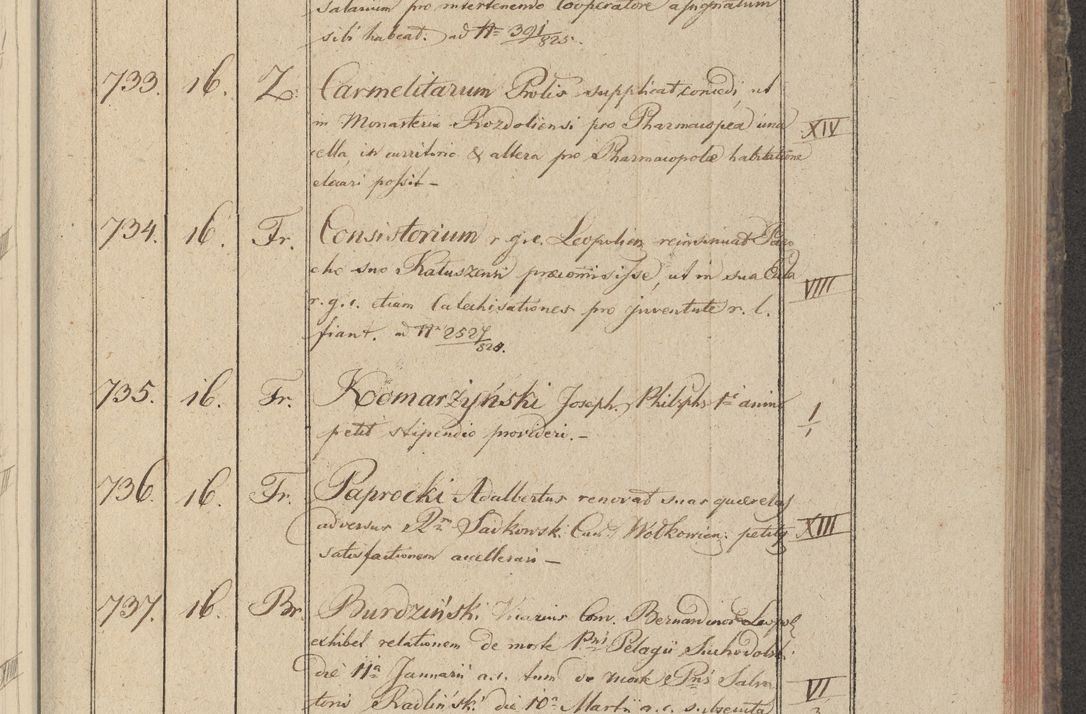 salarium pro intertenendo Cooperatore assignatum
sibi habeat. ad Nro 391/825.
733. 16. Z. Carmelitarum Prolis supplicat concedi, ut
in Monasterio Rozdoliensi pro Pharmacopea una XIV
cella in curritorio & altera pro Pharmacopolae habitatione
elocari possit –
734. 16. Fr. Consistorium r. g. c. Leopolien. reinsinuat Paro
cho suo Katuszensi praecommisisse, ut in sua Ecla VIII
r. g. c. etiam Catechisationes pro juventute r. l.
fiant. ad Nro 2527/824.
735. 16. Fr. Komarzyński Joseph. Philsphs 1i anni 1/1
petit stipendio provideri. –
736. 16. Fr. Paprocki Adalbertus renovat suas querelas
adversus Rm Sadkowski Cur. Wolkowien. petitq XIII
satisfactionem accellerari –
737. 16. Br. Burdziński Vicarius Conv. Bernardinor Leopol.
exhibet relationem de morte Pris Pelagii Suchodolski
die 11a Januarii a. c. tum de morte Pris Salva VI
toris Radliński die 10a Martii a. c.